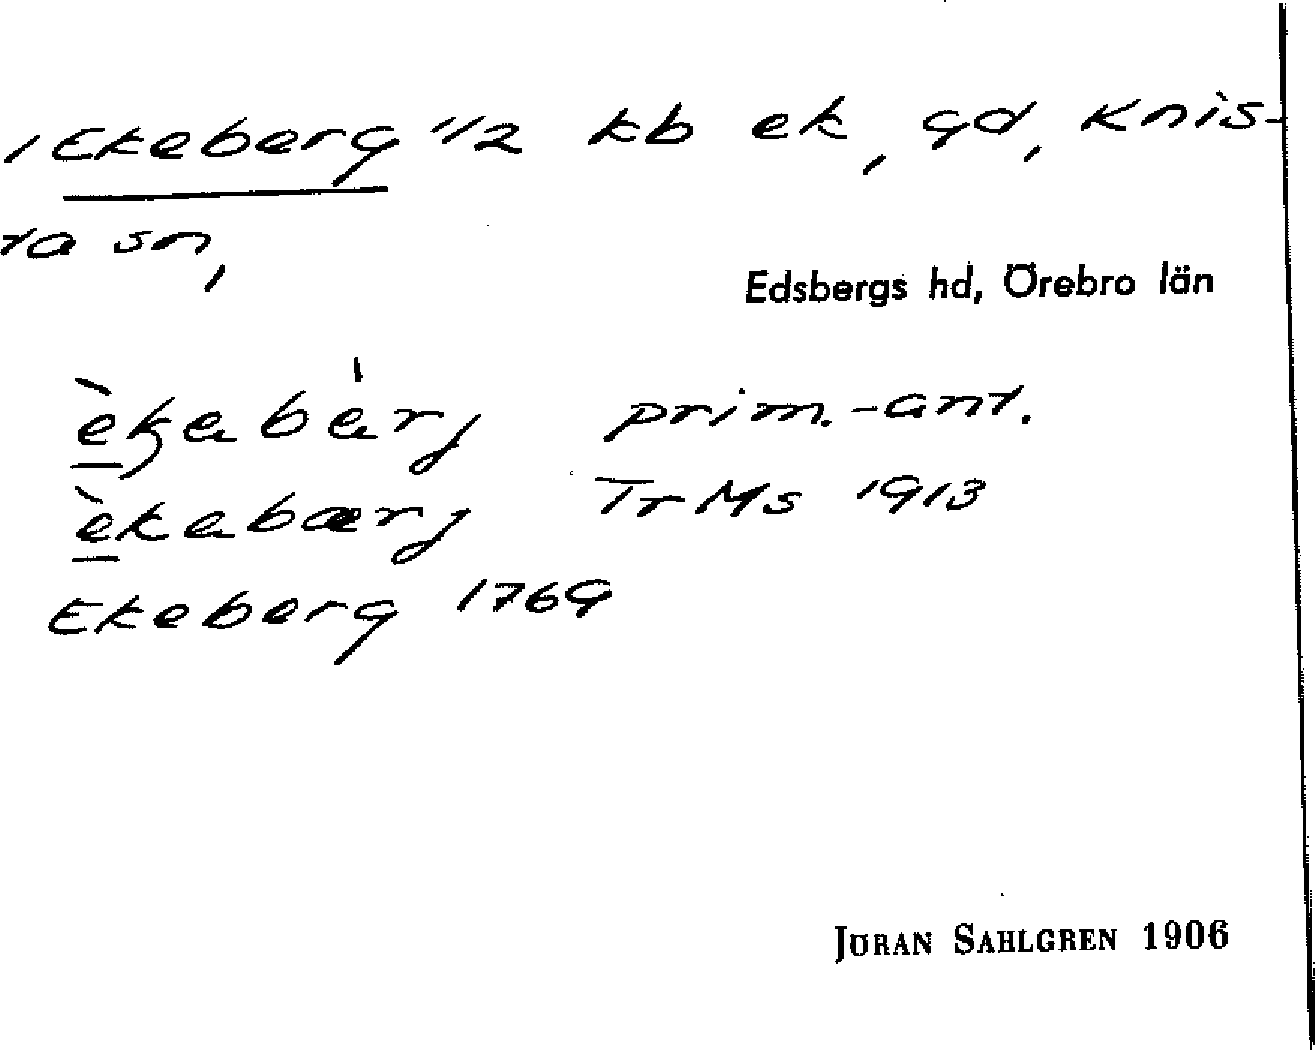 1 Ekeberg 1/2 kb ek, gd, Knis-
ta sn,
Edsbergs hd, Örebro län
prim.-ant.
TrMs 1913
Ekeberg 1769
JÖRAN SAHLGREN 1906